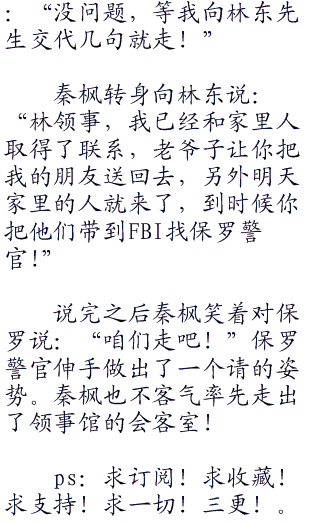 ：“没问题，等我向林东先
生交代几句就走！”
秦枫转身向林东说：
“林领事，我已经和家里人
取得了联系，老爷子让你把
我的朋友送回去，另外明天
家里的人就来了，到时候你
把他们带到FBI找保罗警
官！”
说完之后秦枫笑着对保
罗说：“咱们走吧！”保罗
警官伸手做出了一个请的姿
势。秦枫也不客气率先走出
了领事馆的会客室！
ps：求订阅！求收藏！
求支持！求一切！三更！。